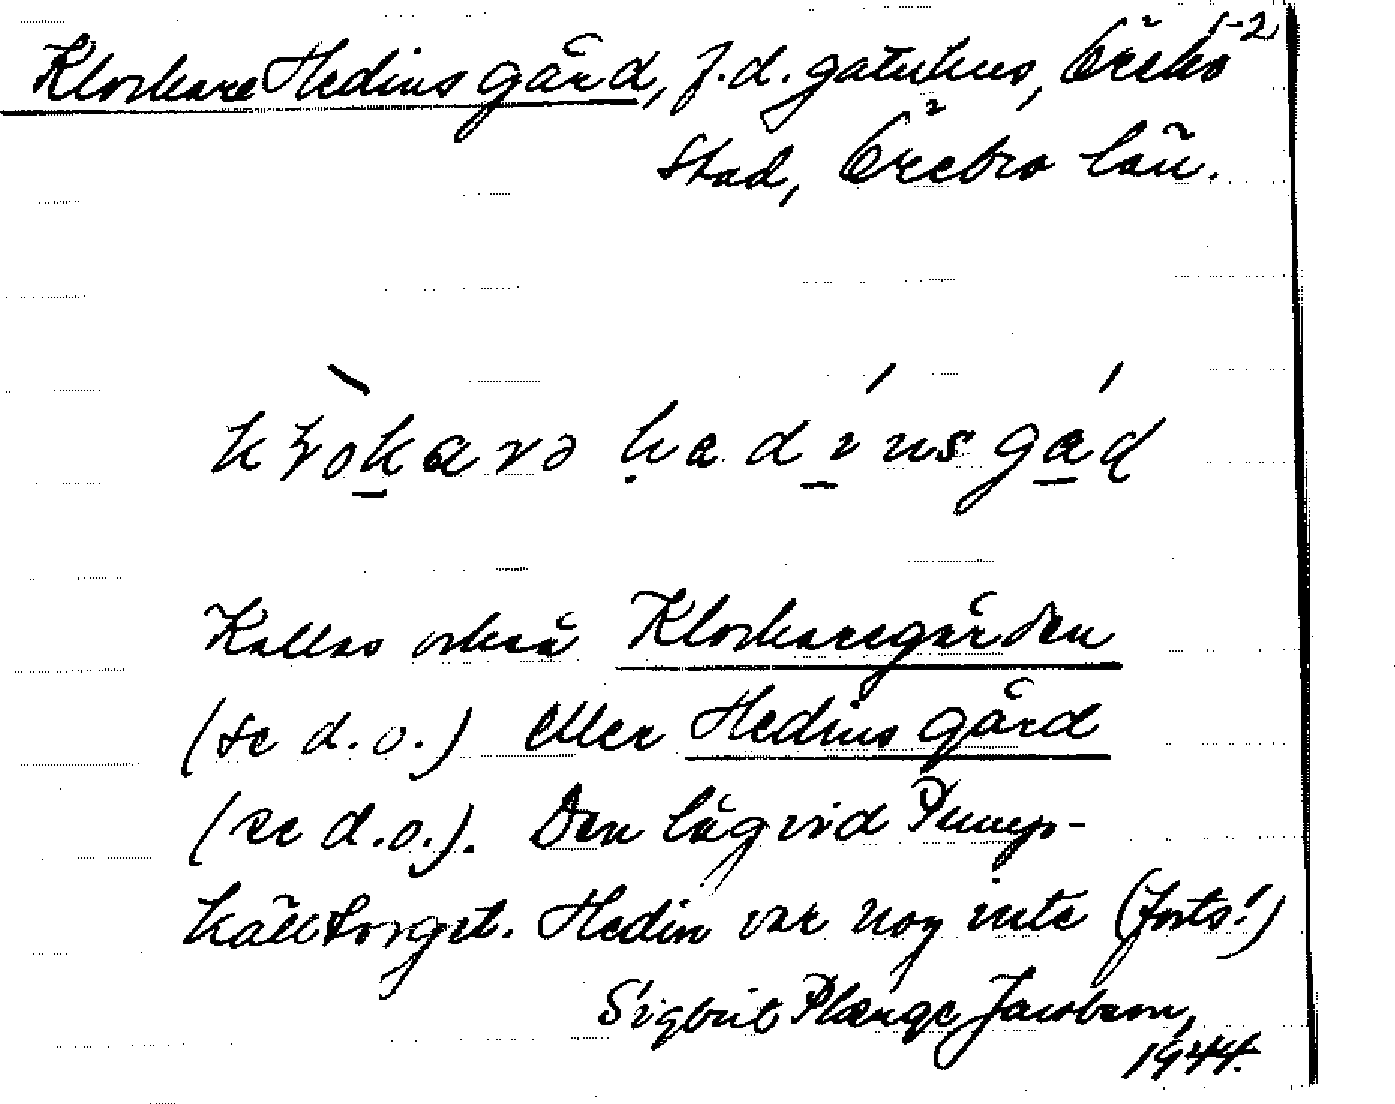 1-2
Klockare Hedins gård, f.d. gatuhus, Örebro
stad, Örebro län.
Kallas också Klockaregården
(se d.o.) eller Hedins gård
(se d.o.). Den låg vid Pump-
källtorget. Hedin var nog inte (forts!)
Sigbrit Plænge Jacobson,
1944.